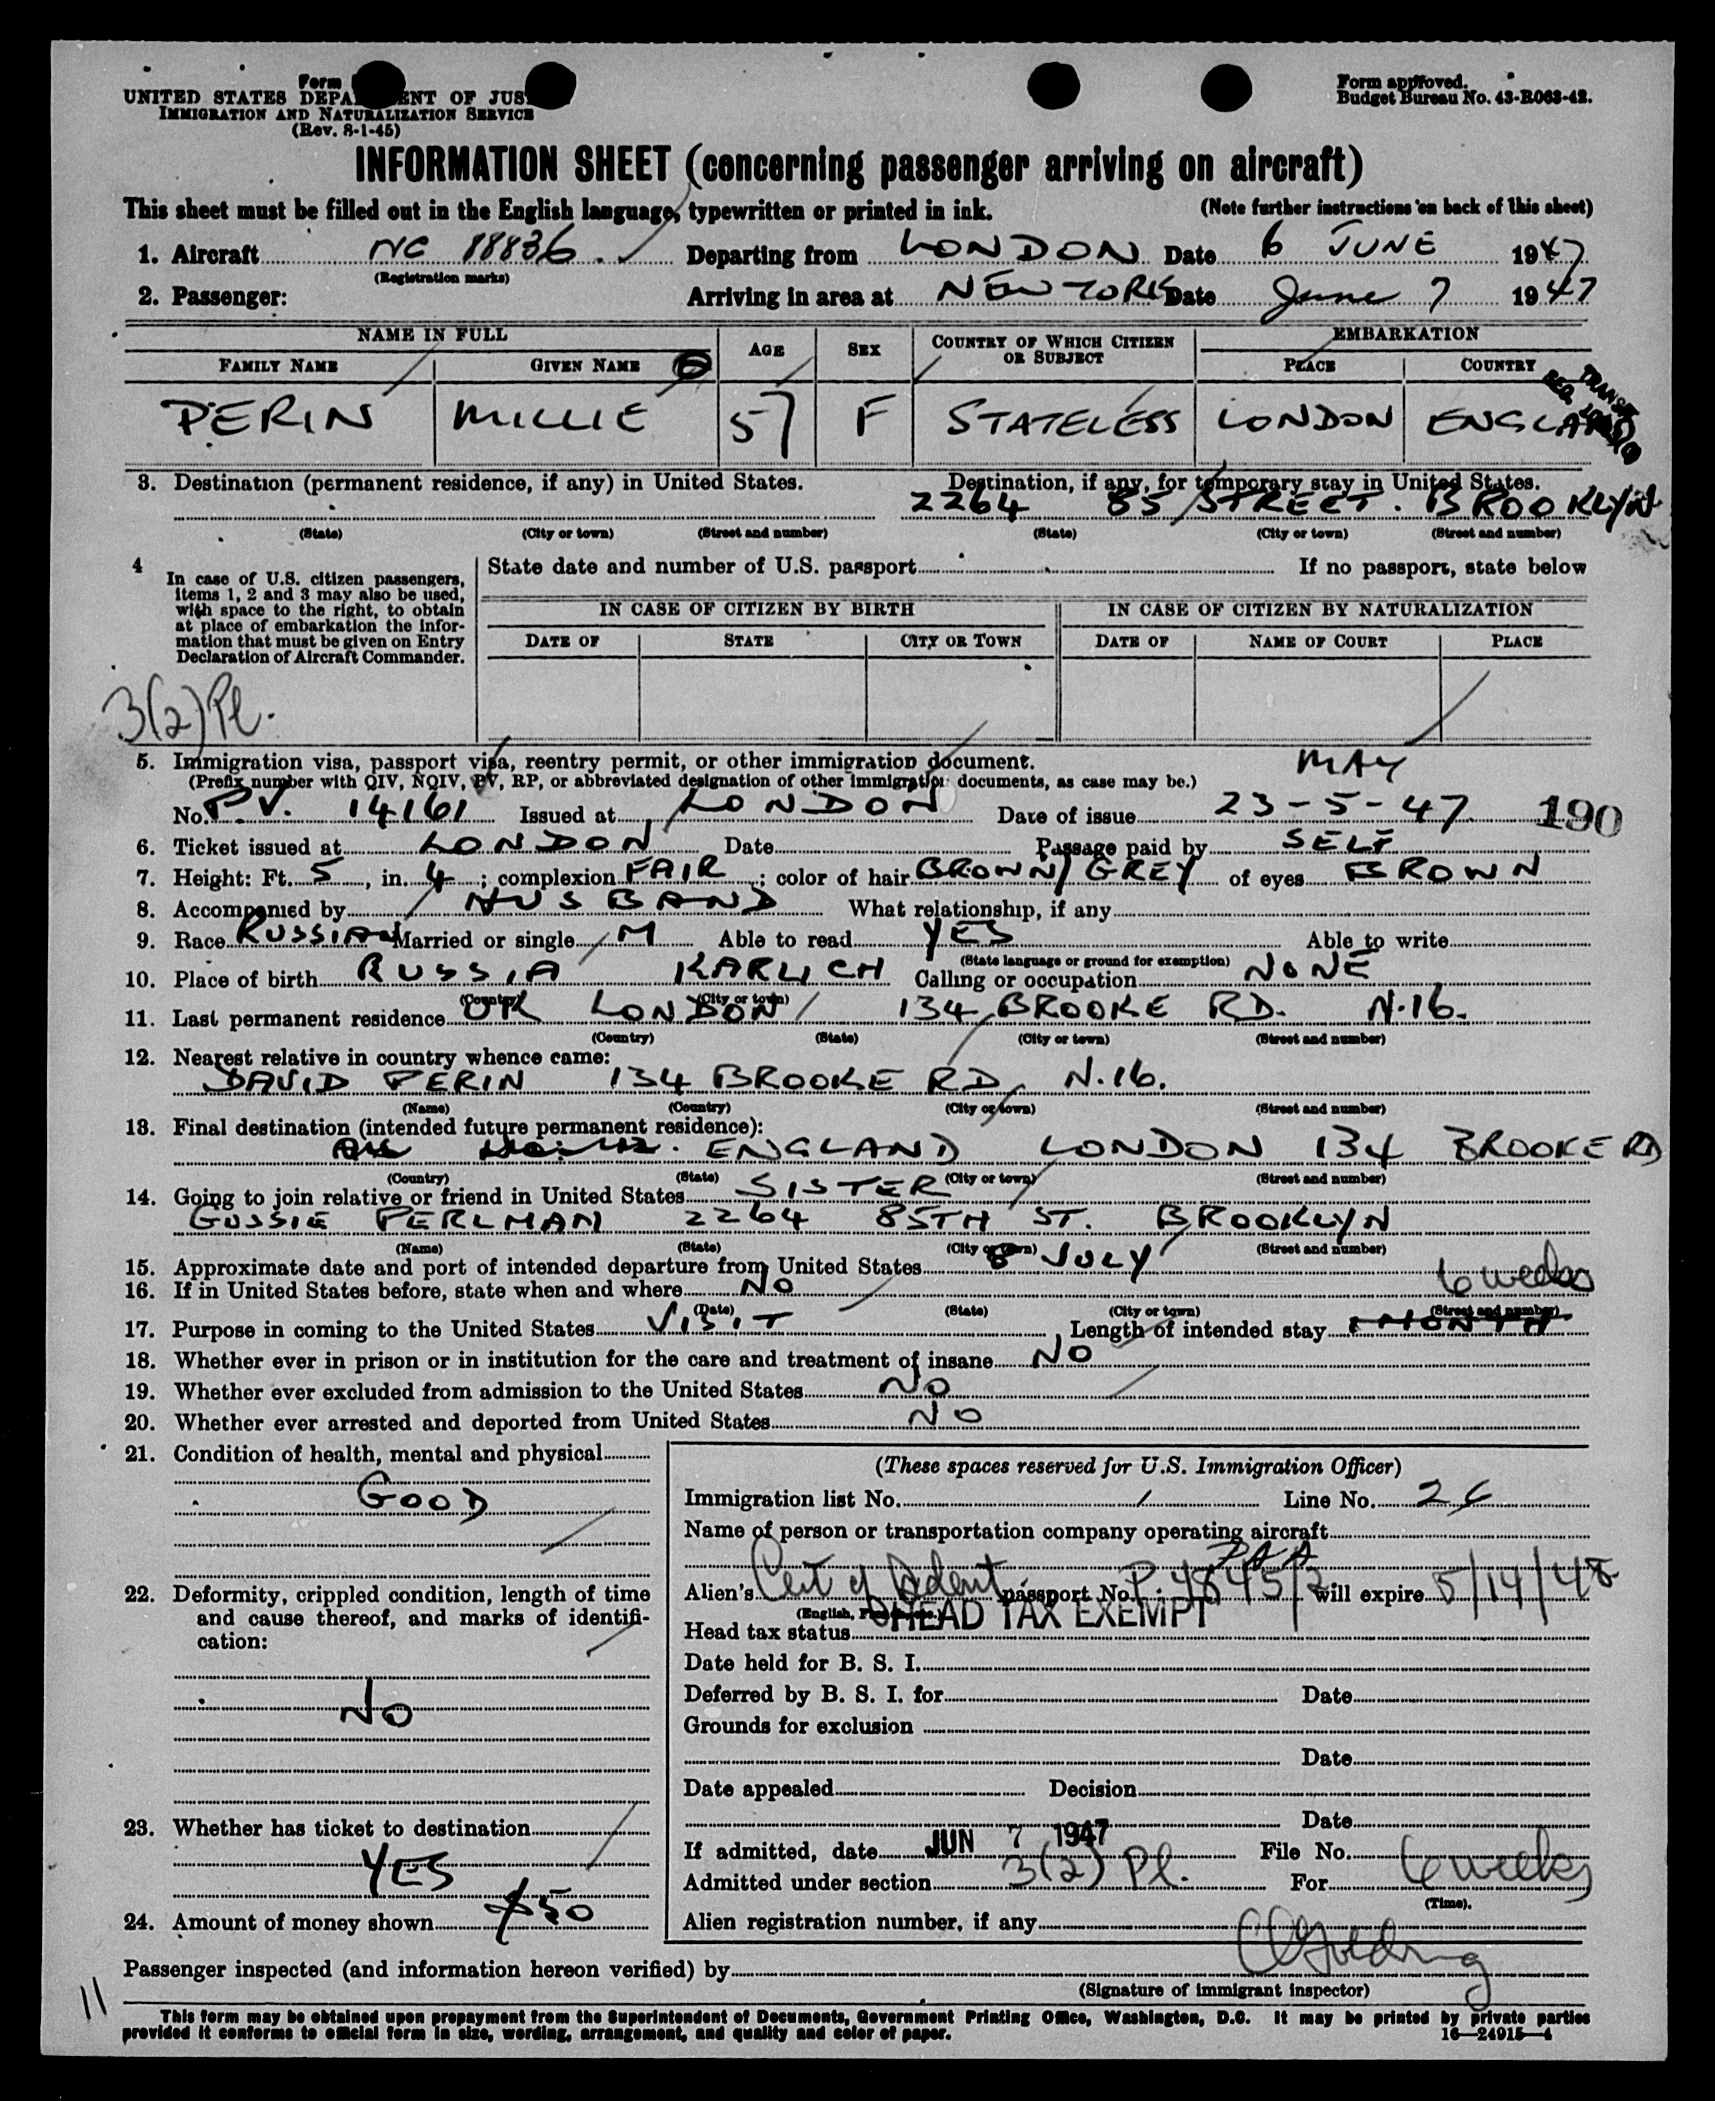 Form
UNITED STATES DEPARTMENT OF JUS
IMMIGRATION AND NATURALIZATION SERVICE
(Rev. 8-1-45)
Form approved.
Budget Bureau No. 43-R063-42.
INFORMATION SHEET (concerning passenger arriving on aircraft)
This sheet must be filled out in the English language, typewritten or printed in ink. (Note further instructions on back of this sheet)
1. Aircraft NC 88836 Departing from LONDON Date 6 JUNE 1947
(Registration marks)
2. Passenger: Arriving in area at NEW YORK Date June 7 1947
NAME IN FULL AGE SEX COUNTRY OF WHICH CITIZEN OR SUBJECT EMBARKATION
FAMILY NAME GIVEN NAME PLACE COUNTRY
PERIN MILLIE 57 F STATELESS LONDON ENGLAND
3. Destination (permanent residence, if any) in United States. Destination, if any, for temporary stay in United States.
2264 85 STREET. BROOKLYN
(State) (City or town) (Street and number) (State) (City or town) (Street and number)
4 In case of U.S. citizen passengers, items 1, 2 and 3 may also be used, with space to the right, to obtain at place of embarkation the information that must be given on Entry Declaration of Aircraft Commander.
State date and number of U.S. passport If no passport, state below
IN CASE OF CITIZEN BY BIRTH IN CASE OF CITIZEN BY NATURALIZATION
DATE OF STATE CITY OR TOWN DATE OF NAME OF COURT PLACE
3(2) Pl.
5. Immigration visa, passport visa, reentry permit, or other immigration document. MAY
(Prefix number with QIV, NQIV, PV, RP, or abbreviated designation of other immigration documents, as case may be.)
No. P.V. 14161 Issued at LONDON Date of issue 23-5-47 190
6. Ticket issued at LONDON Date Passage paid by SELF
7. Height: Ft. 5, in. 4; complexion FAIR; color of hair BROWN/GREY of eyes BROWN
8. Accompanied by HUSBAND What relationship, if any
9. Race RUSSIAN Married or single M Able to read YES Able to write
(State language or ground for exemption)
10. Place of birth RUSSIA KARLICH Calling or occupation NONE
(Country) (City or town)
11. Last permanent residence UK LONDON 134 BROOKE RD. N.16.
(Country) (State) (City or town) (Street and number)
12. Nearest relative in country whence came:
DAVID PERIN 134 BROOKE RD, N.16.
(Name) (Country) (City or town) (Street and number)
13. Final destination (intended future permanent residence):
ENGLAND LONDON 134 BROOKE RD
(Country) (State) (City or town) (Street and number)
14. Going to join relative or friend in United States SISTER
GUSSIE PERLMAN 2264 85TH ST. BROOKLYN
(Name) (State) (City or town) (Street and number)
15. Approximate date and port of intended departure from United States 8 JULY
16. If in United States before, state when and where NO 6 weeks
(Date) (State) (City or town) (Street and number)
17. Purpose in coming to the United States VISIT, Length of intended stay 1 MONTH
18. Whether ever in prison or in institution for the care and treatment of insane NO
19. Whether ever excluded from admission to the United States NO
20. Whether ever arrested and deported from United States NO
21. Condition of health, mental and physical
GOOD
22. Deformity, crippled condition, length of time
and cause thereof, and marks of identifi-
cation:
NO
23. Whether has ticket to destination
YES
24. Amount of money shown $50
(These spaces reserved for U.S. Immigration Officer)
Immigration list No. Line No. 26
Name of person or transportation company operating aircraft
PAA
Alien's Cert of Ident passport No. P. 4845/2 will expire 5/14/48
HEAD TAX EXEMPT
Head tax status
Date held for B. S. I.
Deferred by B. S. I. for Date
Grounds for exclusion
Date
Date appealed Decision
Date
If admitted, date JUN 7 1947 File No.
Admitted under section 3(2) Pl. For 6 weeks
(Time).
Alien registration number, if any
Passenger inspected (and information hereon verified) by
(Signature of immigrant inspector)
11
This form may be obtained upon prepayment from the Superintendent of Documents, Government Printing Office, Washington, D.C. It may be printed by private parties
provided it conforms to official form in size, wording, arrangement, and quality and color of paper. 16—24915—4